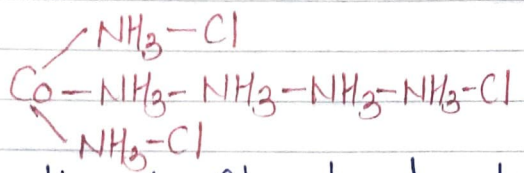 NH3-Cl
Co-NH3-NH3-NH3-NH3-Cl
NH3-Cl